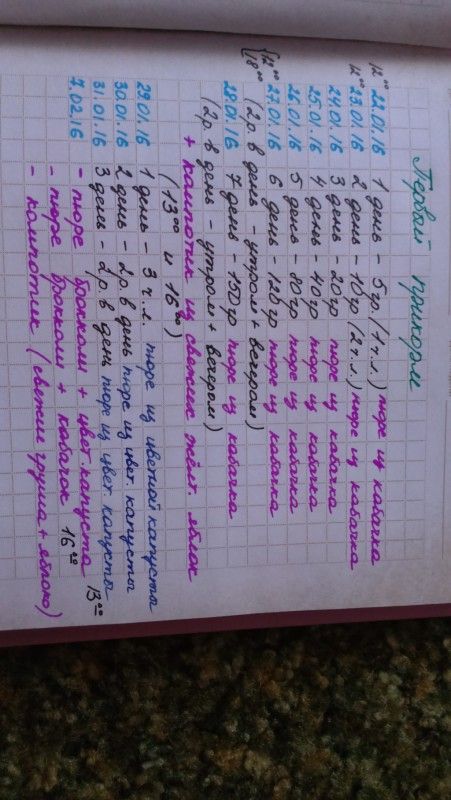 Первый прикорм
12 00 22.01.16 1 день - 5 гр. (1 ч.л.) пюре из кабачка
12 00 23.01.16 2 день - 10 гр (2 ч.л.) пюре из кабачка
24.01.16 3 день - 20 гр пюре из кабачка
25.01.16 4 день - 40 гр пюре из кабачка
26.01.16 5 день - 80 гр пюре из кабачка
{12 00 27.01.16 6 день - 120 гр пюре из кабачка
18 00 (2 р. в день - утром + вечером)
28.01.16 7 день - 150 гр пюре из кабачка
(2 р. в день - утром + вечером)
+ компотик из свежих жёлт. яблок
(13 00 и 16 00)
29.01.16 1 день - 3 ч.л. пюре из цветной капусты
30.01.16 2 день - 2 р. в день пюре из цвет. капусты
31.01.16 3 день - 2 р. в день пюре из цвет. капусты
7.02.16 - пюре брокколи + цвет. капуста 13 00
- пюре брокколи + кабачок 16 00
- компотик (свежие груша + яблоко)